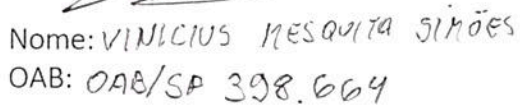 Nome: VINICIUS MESQUITA SIMÕES
OAB: OAB/SP 398.664